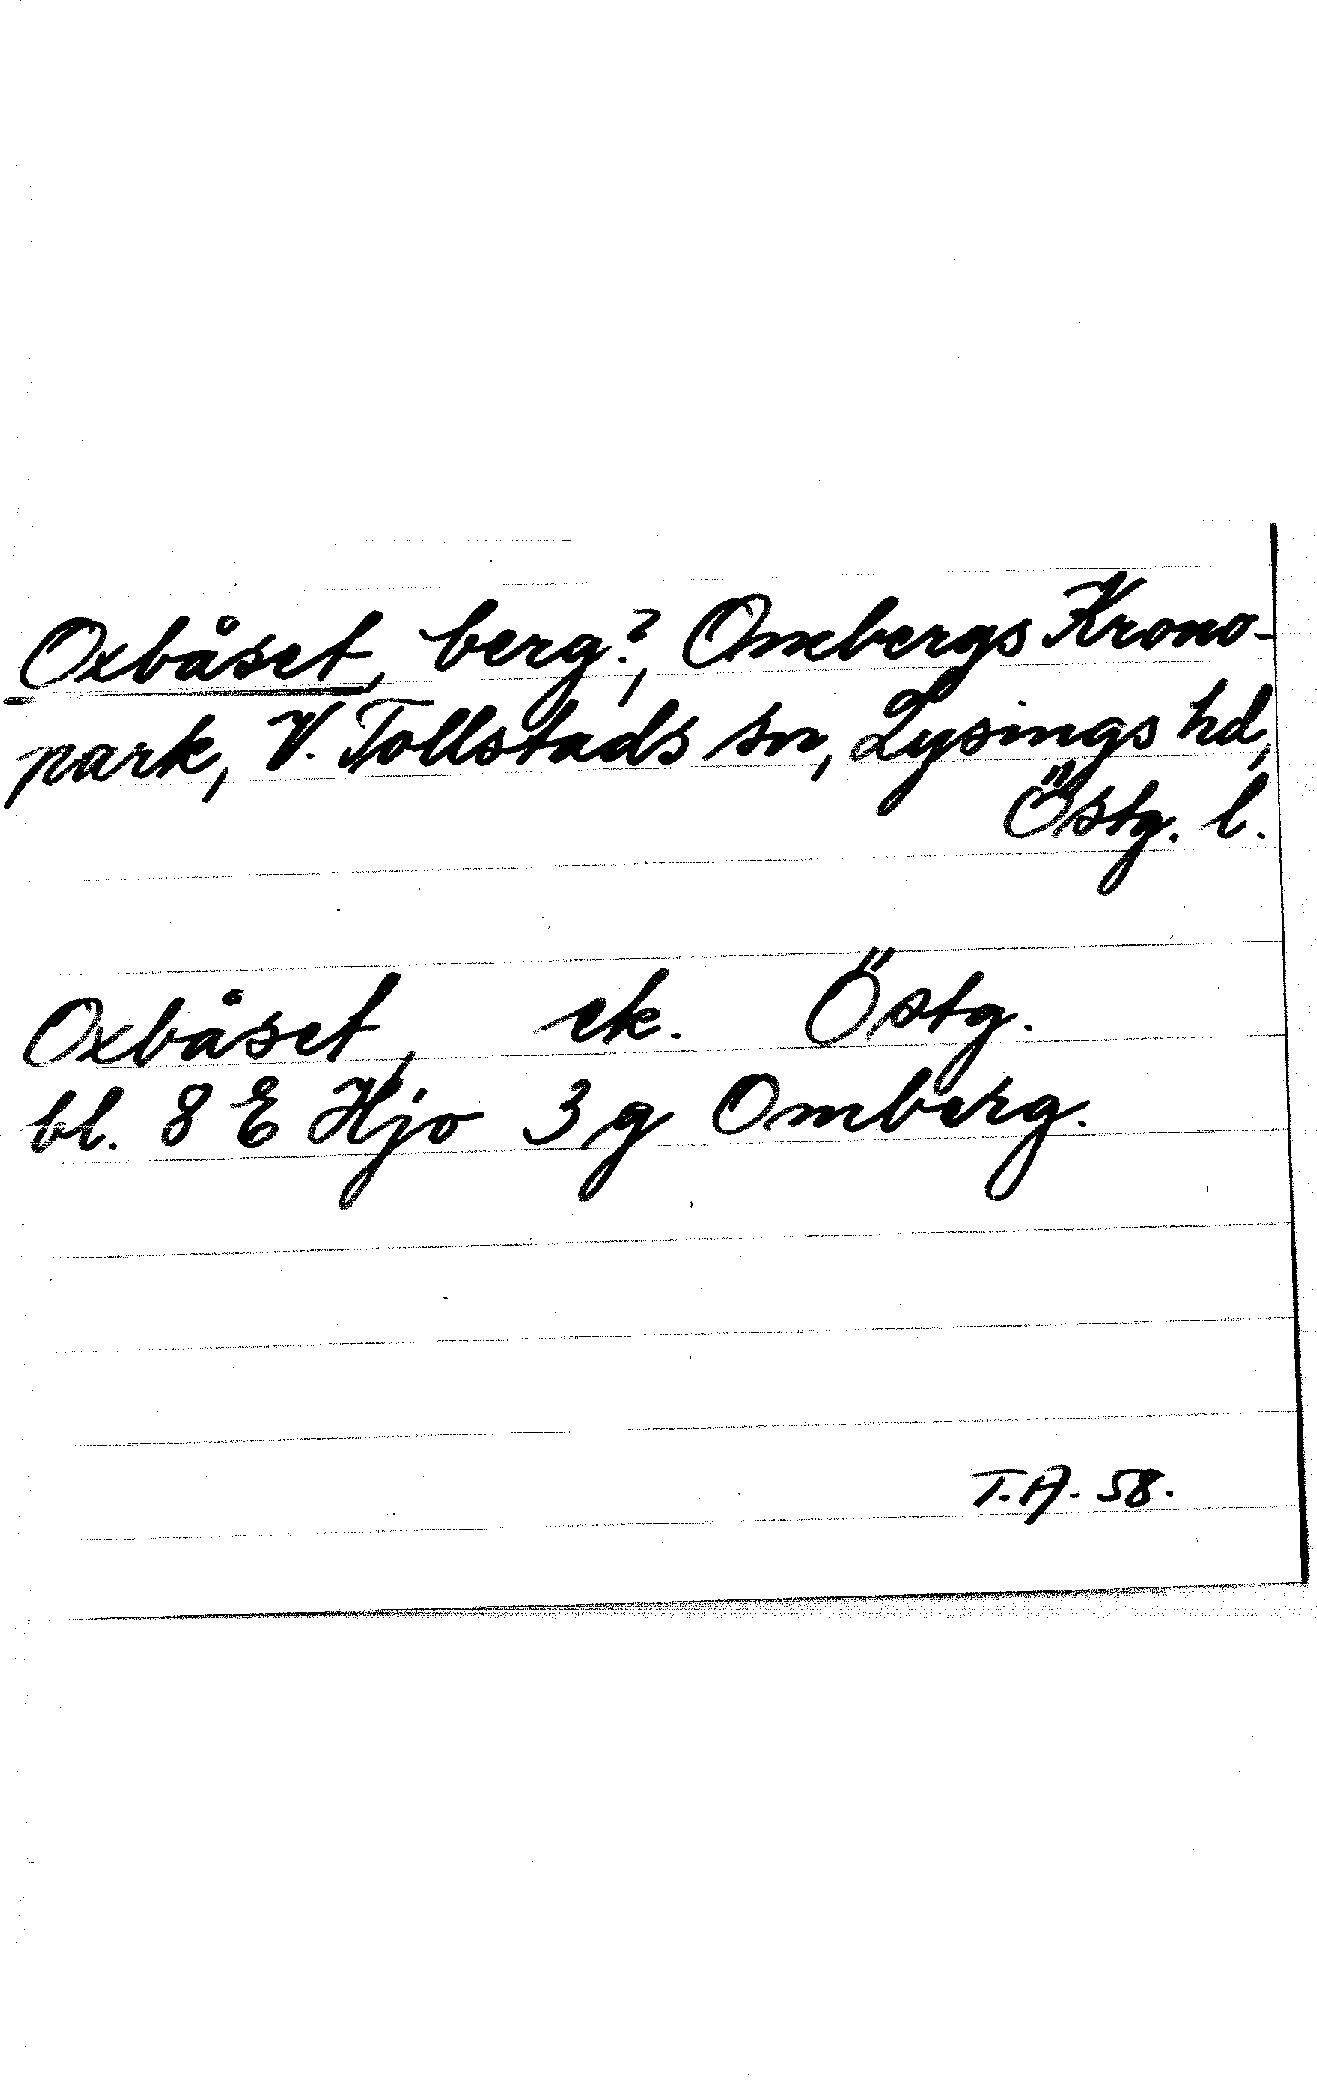 Oxbåset, berg?, Ombergs Krono-
park, V. Tollstads sn, Lysings hd,
Östg. l.
Oxbåset, ek. Östg.
bl. 8 E Hjo 3 g Omberg.
T.A. 58.